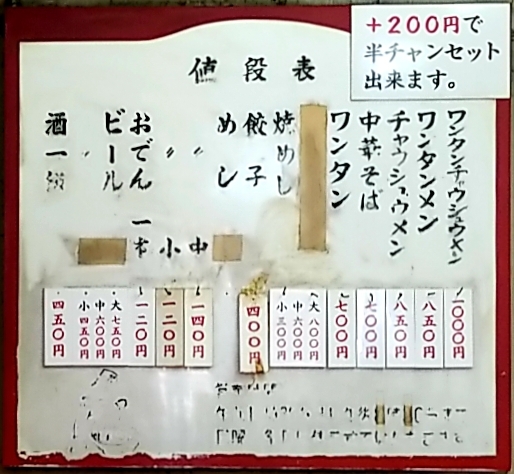 ＋200円で
半チャンセット
出来ます。
値段表
ワンタンチャウシュウメン
ワンタンメン
チャウシュウメン
中華そば
ワンタン
焼めし
餃子
めし
〃 中
〃 小
おでん 一本
ビール
〃
酒一
一〇〇〇円
八五〇円
八五〇円
七〇〇円
七〇〇円
大八〇〇円
中六〇〇円
小三〇〇円
四〇〇円
一四〇円
一二〇円
一二〇円
大七五〇円
中六〇〇円
小四五〇円
四五〇円